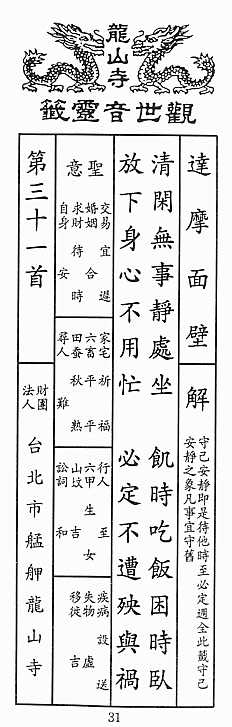 龍山寺
觀世音靈籤
達摩面壁
解
守己安靜即是待他時至必定週全此籤守己
安靜之象凡事宜守舊
清閑無事靜處坐 飢時吃飯困時臥
放下身心不用忙 必定不遭殃與禍
聖意
交易 宜遲
婚姻 合
求財 待時
自身 安
家宅 祈福
六畜 平平
田蚕 秋熟
尋人 難
行人 至
六甲 生女
山坟 吉
訟詞 和
疾病 設送
失物 虛
移徙 吉
第三十一首
財團
法人
台北市艋舺龍山寺
31